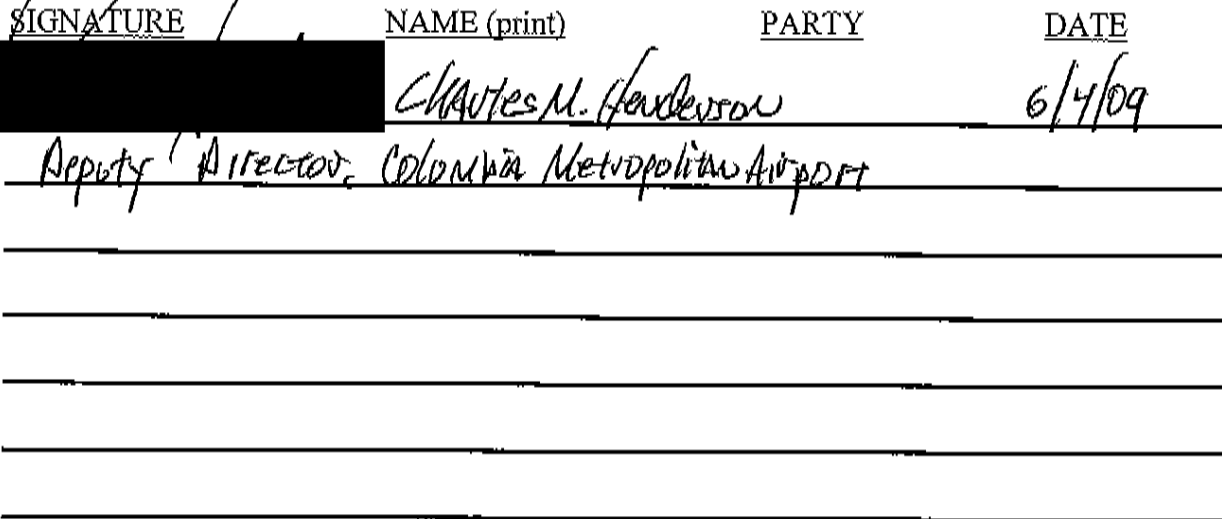 SIGNATURE NAME (print) PARTY DATE
Charles M. Henderson 6/4/09
Deputy Director, Columbia Metropolitan Airport